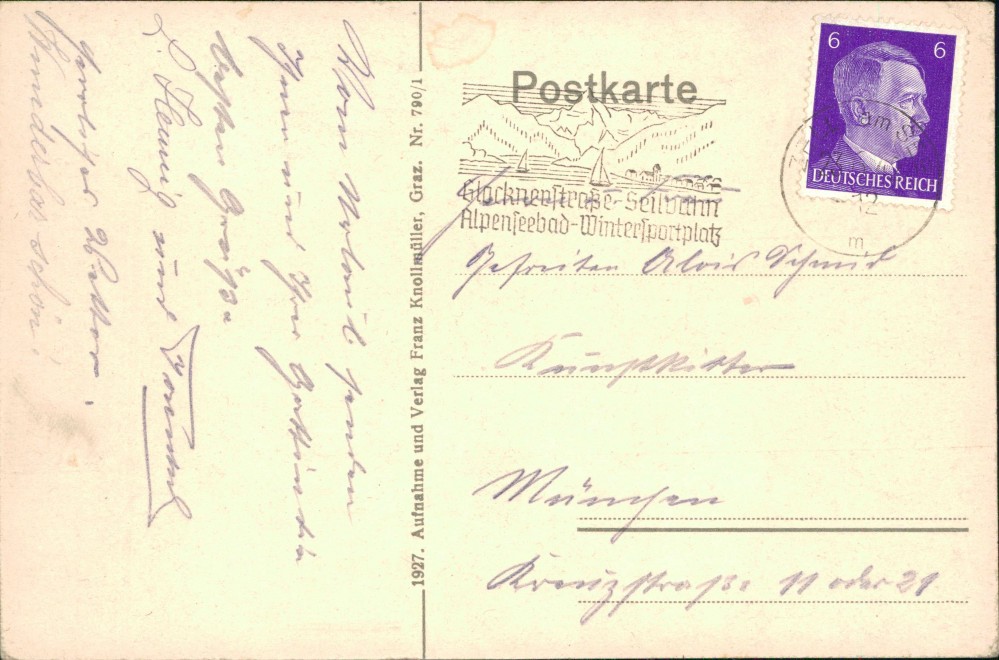 Postkarte
6 6
DEUTSCHES REICH
Glocknerstraße-Seilbahn
Alpenseebad-Wintersportplatz
12
m
Alois Schmid
München
Kreuzstraße 11 oder 21
1927. Aufnahme und Verlag Franz Knollmüller, Graz. Nr. 790/1
Vom Urlaub senden
Ihnen und Ihrer Gattin die
besten Grüße
und
Herrliches Wetter.
Wunderbar schön!